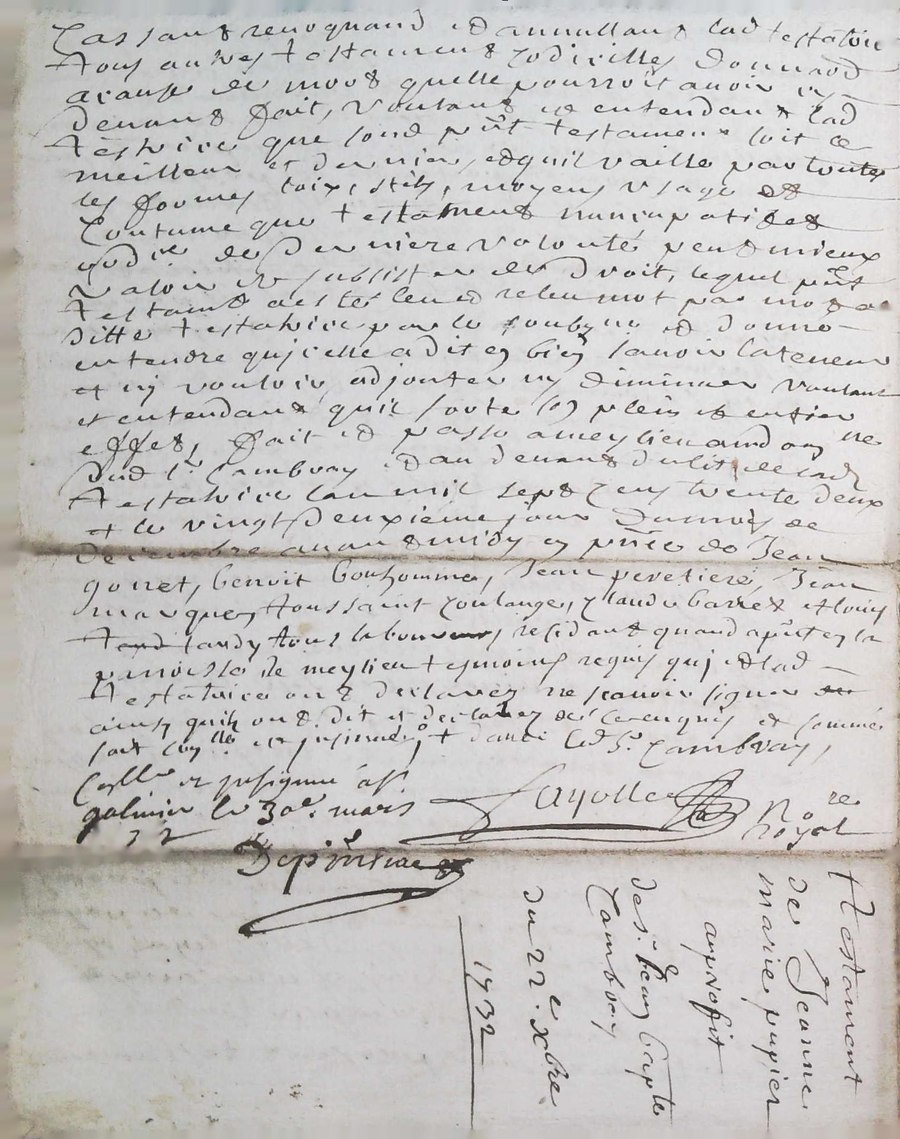 Cassant revoquand et annullant lad testatrice
tous autres testament codicilles donnaõ
acause de mort quelle pourroit avoir cy
devant fait, voulant et entendant lad
testrice que sond pñt testament soit le
meilleur et dernier, et quil vaille par toutes
les formes loix, stils, moyens usage et
Coutume que testament nuncupatif et
codicᵉ de derniere volonté peut mieux
valoir et subsister de droit, lequel pñt
testamt a esté leu et releu mot par mot a
ditte testatrice par le soubzne et donné
entendre quicelle a dit et bien savoir la teneur
et ny vouloir adjouter ny diminuer voulant
et entendant quil sorte son plein et entier
effet, fait et passé a meylieu maison
dud sʳ Cambray et au devant du lit de lad
testatrice lan mil sept cens trente deux
et le vingt deuxieme jour du mois de
decembre avant midy en pñce de Jean
gonet, benoit bonhomme, Jean peretiere, Jean
marquet, toussaint coulange, Claude barret et louis
tardy tous laboureurs residant quand apñt en la
parroisse de meylieu tesmoins requis qui et lad
testatrice ont declarez ne scavoir signer
ainsy quils ont dit et declarez de ce enquis et sommé
soit conllé et insinué dans led sʳ Cambray,
Conllé et insinué a sᵗ
galmier le 30ᵉ mars
Fayolle Noʳᵉ
royal
Testament
de Jeanne
marie pupier
auprofit
de sʳ Jean bapte
Cambray
du 22ᵉ xbre
1732